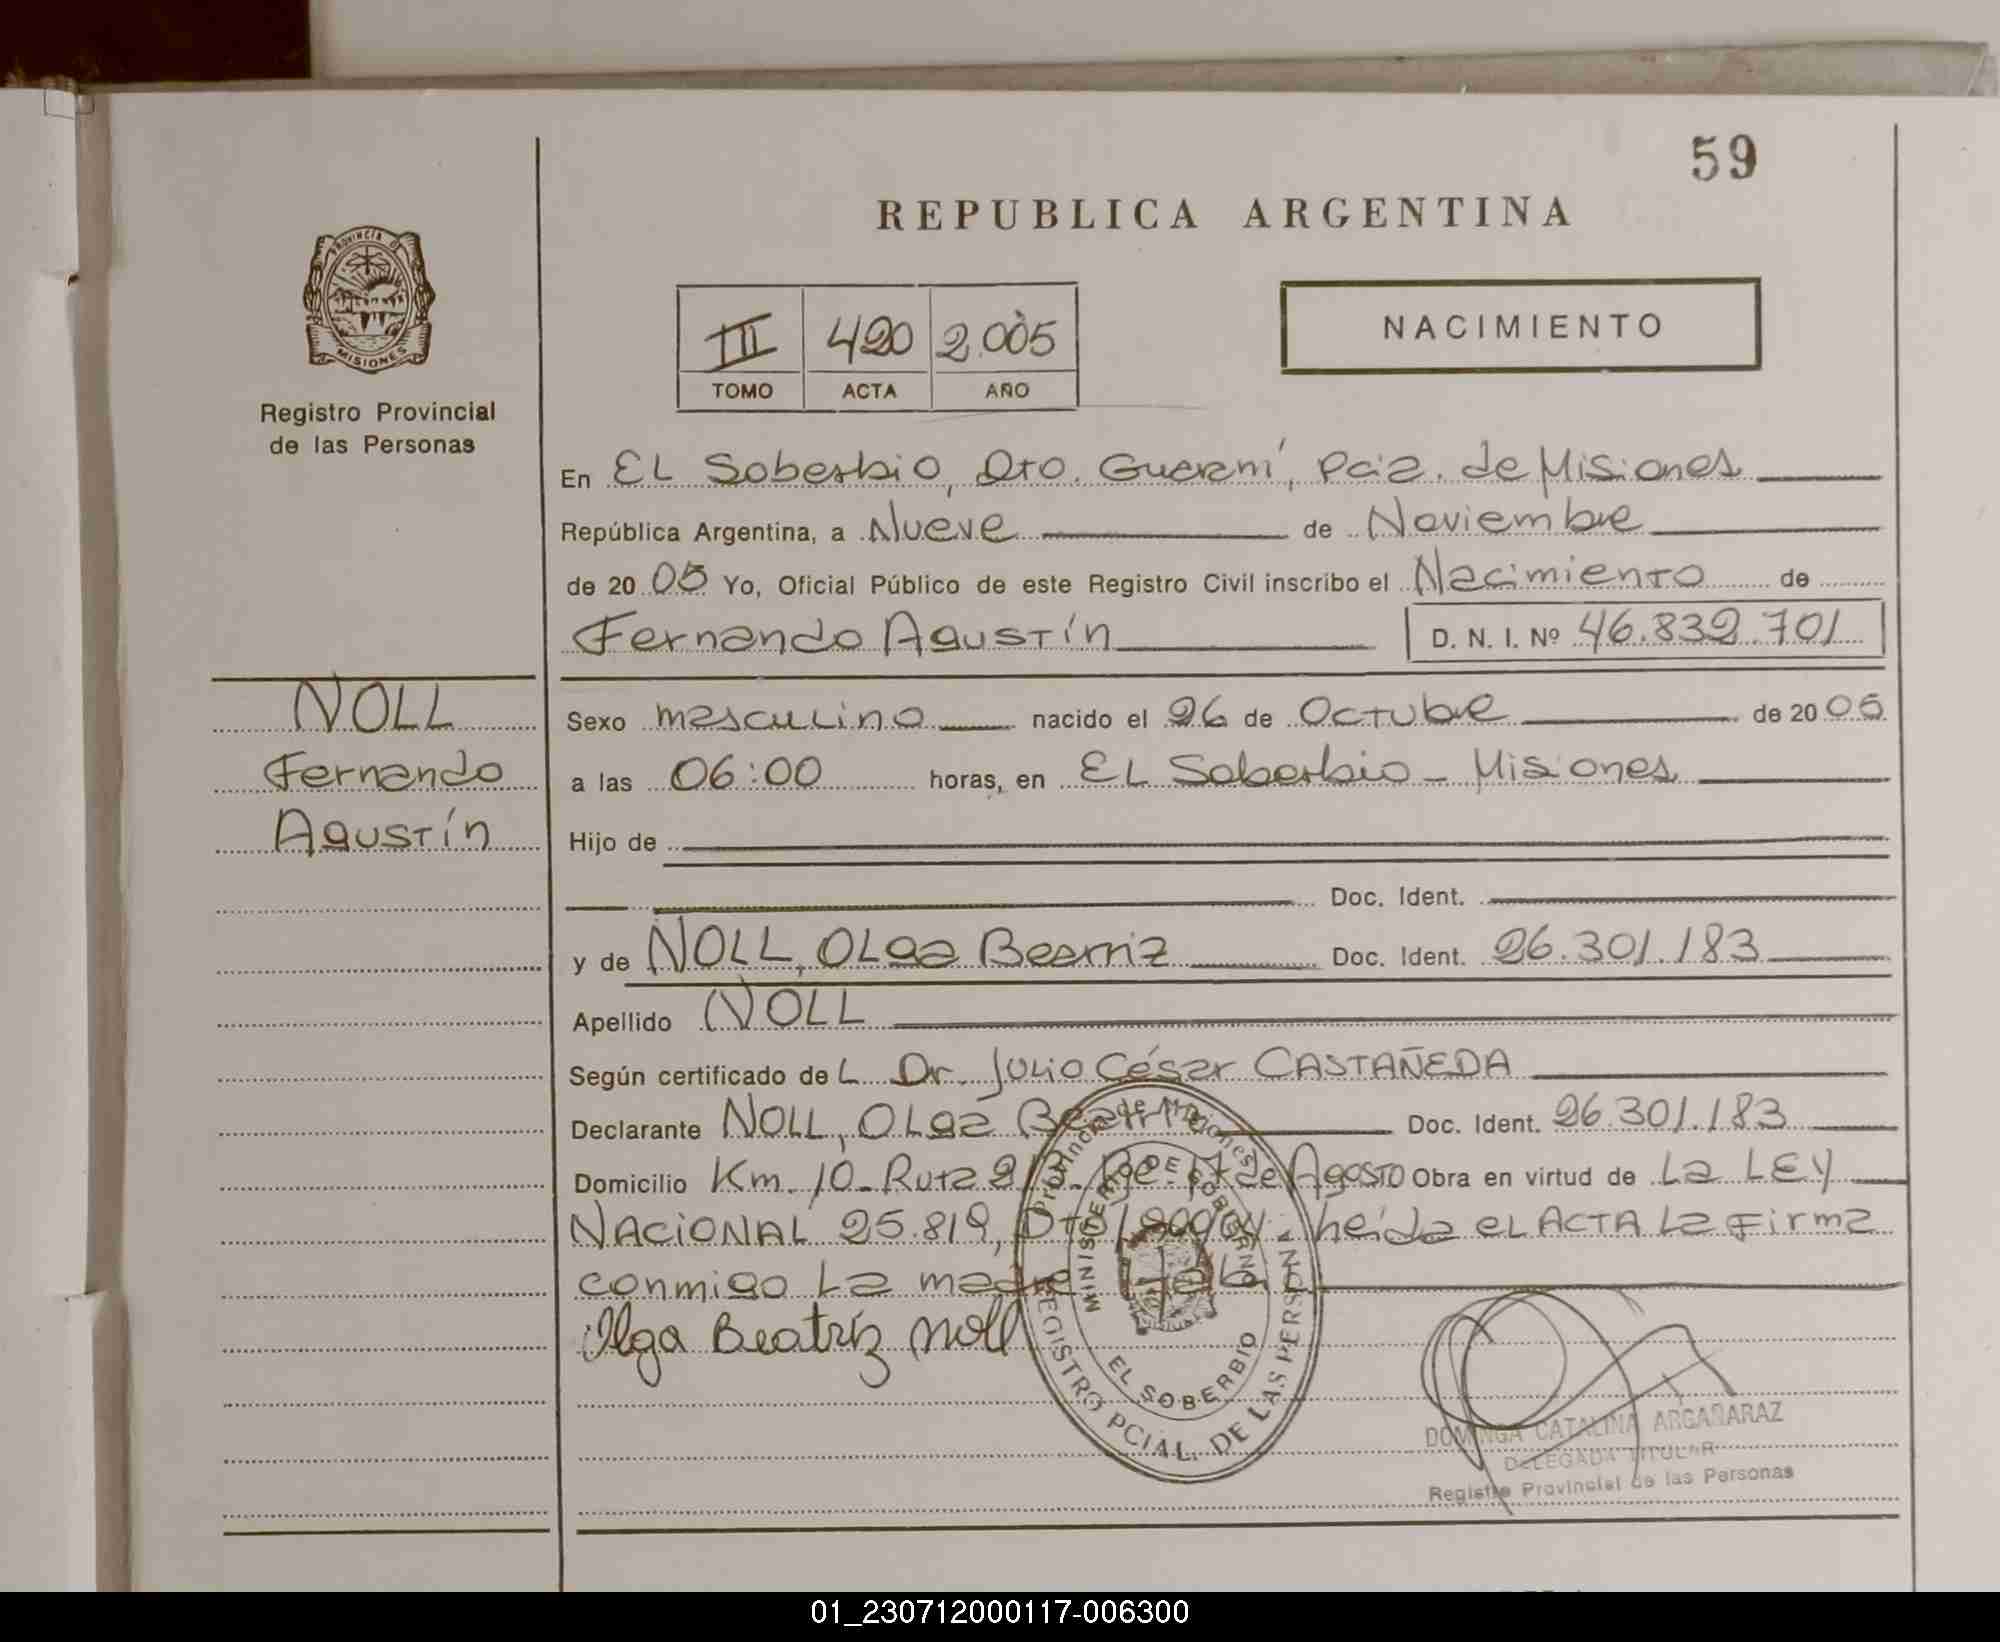 59
REPUBLICA ARGENTINA
PROVINCIA DE
MISIONES
Registro Provincial
de las Personas
III 420 2.005
TOMO ACTA AÑO
NACIMIENTO
En EL Soberbio, Dto. Guaraní, Pcia. de Misiones
República Argentina, a Nueve de Noviembre
de 2005 Yo, Oficial Público de este Registro Civil inscribo el Nacimiento de
Fernando Agustín D. N. I. Nº 46.832.701
NOLL
Fernando
Agustín
Sexo masculino nacido el 26 de Octubre de 2005
a las 06:00 horas, en EL Soberbio - Misiones
Hijo de
Doc. Ident.
y de NOLL, OLga Beatriz Doc. Ident. 26.301.183
Apellido NOLL
Según certificado deL Dr. Julio César CASTAÑEDA
Declarante NOLL, OLga Beatriz Doc. Ident. 26.301.183
Domicilio Km. 10 - Ruta 2 17 de Agosto Obra en virtud de La LEY
NACIONAL 25.819, Leída eL ACTA La Firma
conmigo La madre
Olga Beatríz Noll
Provincia de Misiones
MINISTERIO DE GOBIERNO
EL SOBERBIO
REGISTRO PCIAL. DE LAS PERSONAS
DOMINGA CATALINA ARGAÑARAZ
DELEGADA TITULAR
Registro Provincial de las Personas
01_230712000117-006300